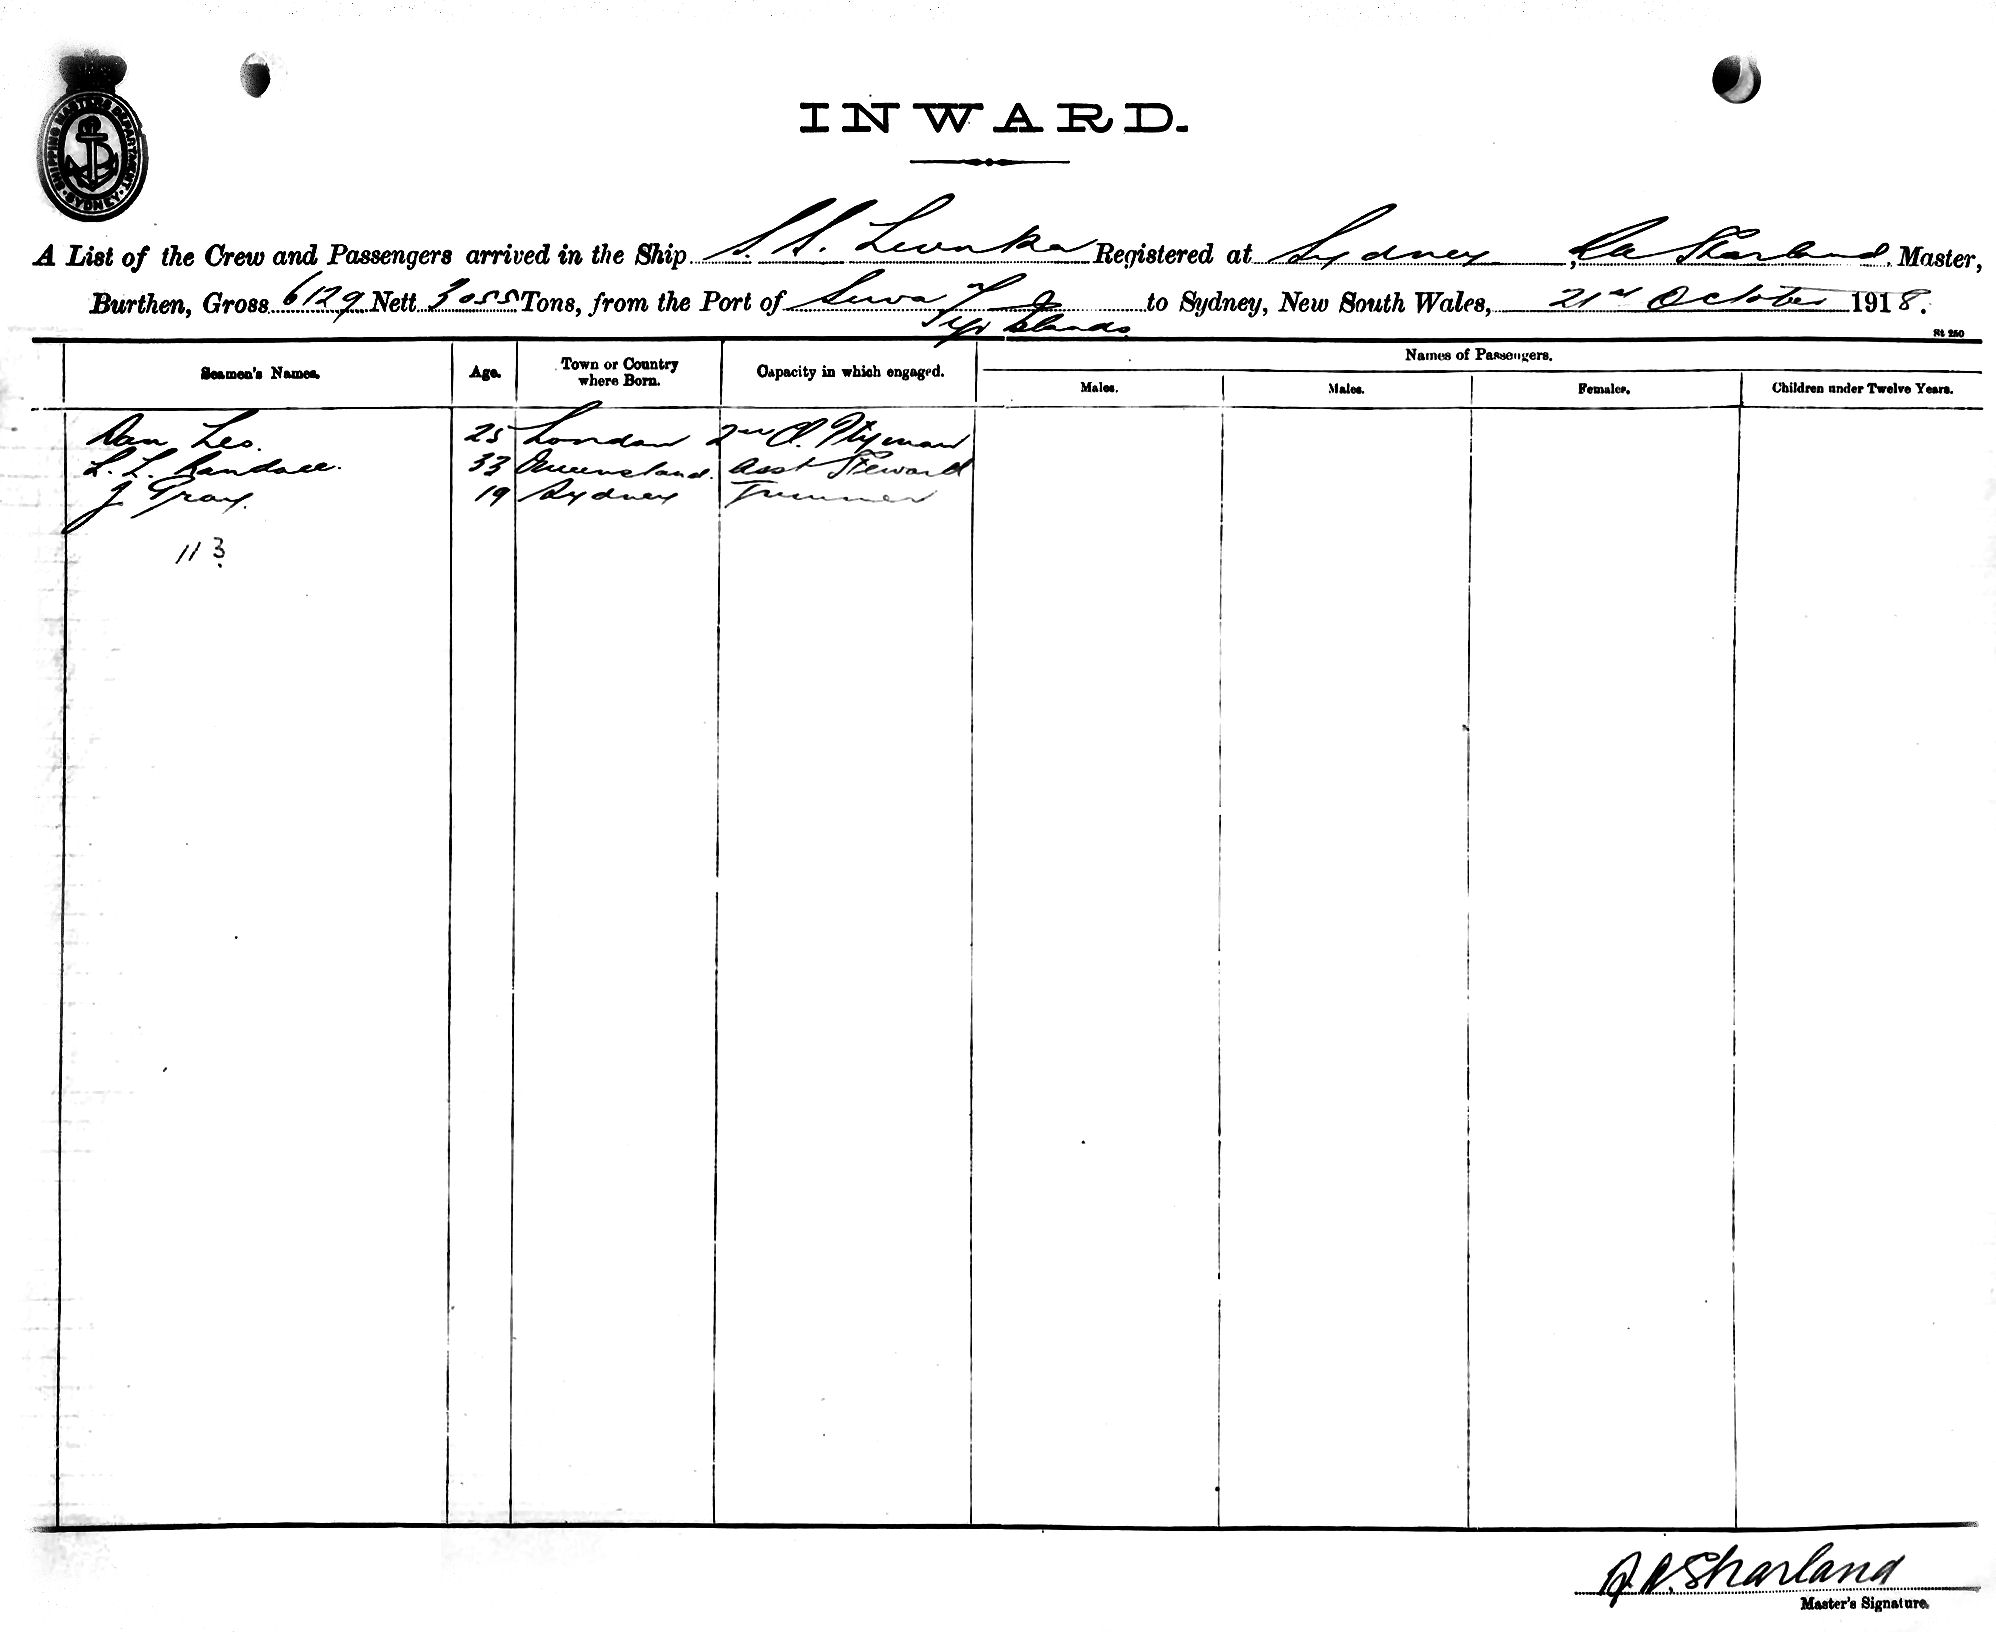 SHIPPING MASTERS DEPARTMENT SYDNEY
INWARD.
A List of the Crew and Passengers arrived in the Ship S.S. Levuka Registered at Sydney, Sharland, Master,
Burthen, Gross 6129 Nett 3055 Tons, from the Port of Suva Fiji Islands to Sydney, New South Wales, 21st October 1918.
St 250
Seamen's Names. Age. Town or Country where Born. Capacity in which engaged. Names of Passengers.
Males. Males. Females. Children under Twelve Years.
Dan Leo. 25 London 2nd
L. L. Randall. 33 Queensland. Asst Steward
J Gray. 19 Sydney Trimmer
113
A. A. Sharland
Master's Signature.